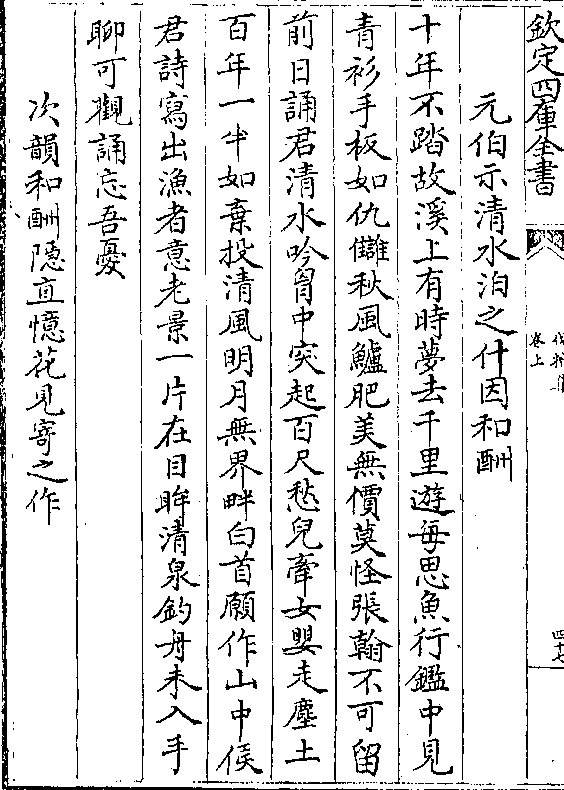 欽定四庫全書
卷上
四十七
元伯示清水泊之什因和酬
十年不踏故溪上有時夢去千里遊每思魚行鑑中見
青衫手板如仇讎秋風鱸肥美無價莫怪張翰不可留
前日誦君清水吟胷中突起百尺愁兒牽女嬰走塵土
百年一半如棄投清風明月無界畔白首願作山中侯
君詩寫出漁者意老景一片在目眸清泉釣舟未入手
聊可觀誦忘吾憂
次韻和酬隱直憶花見寄之作